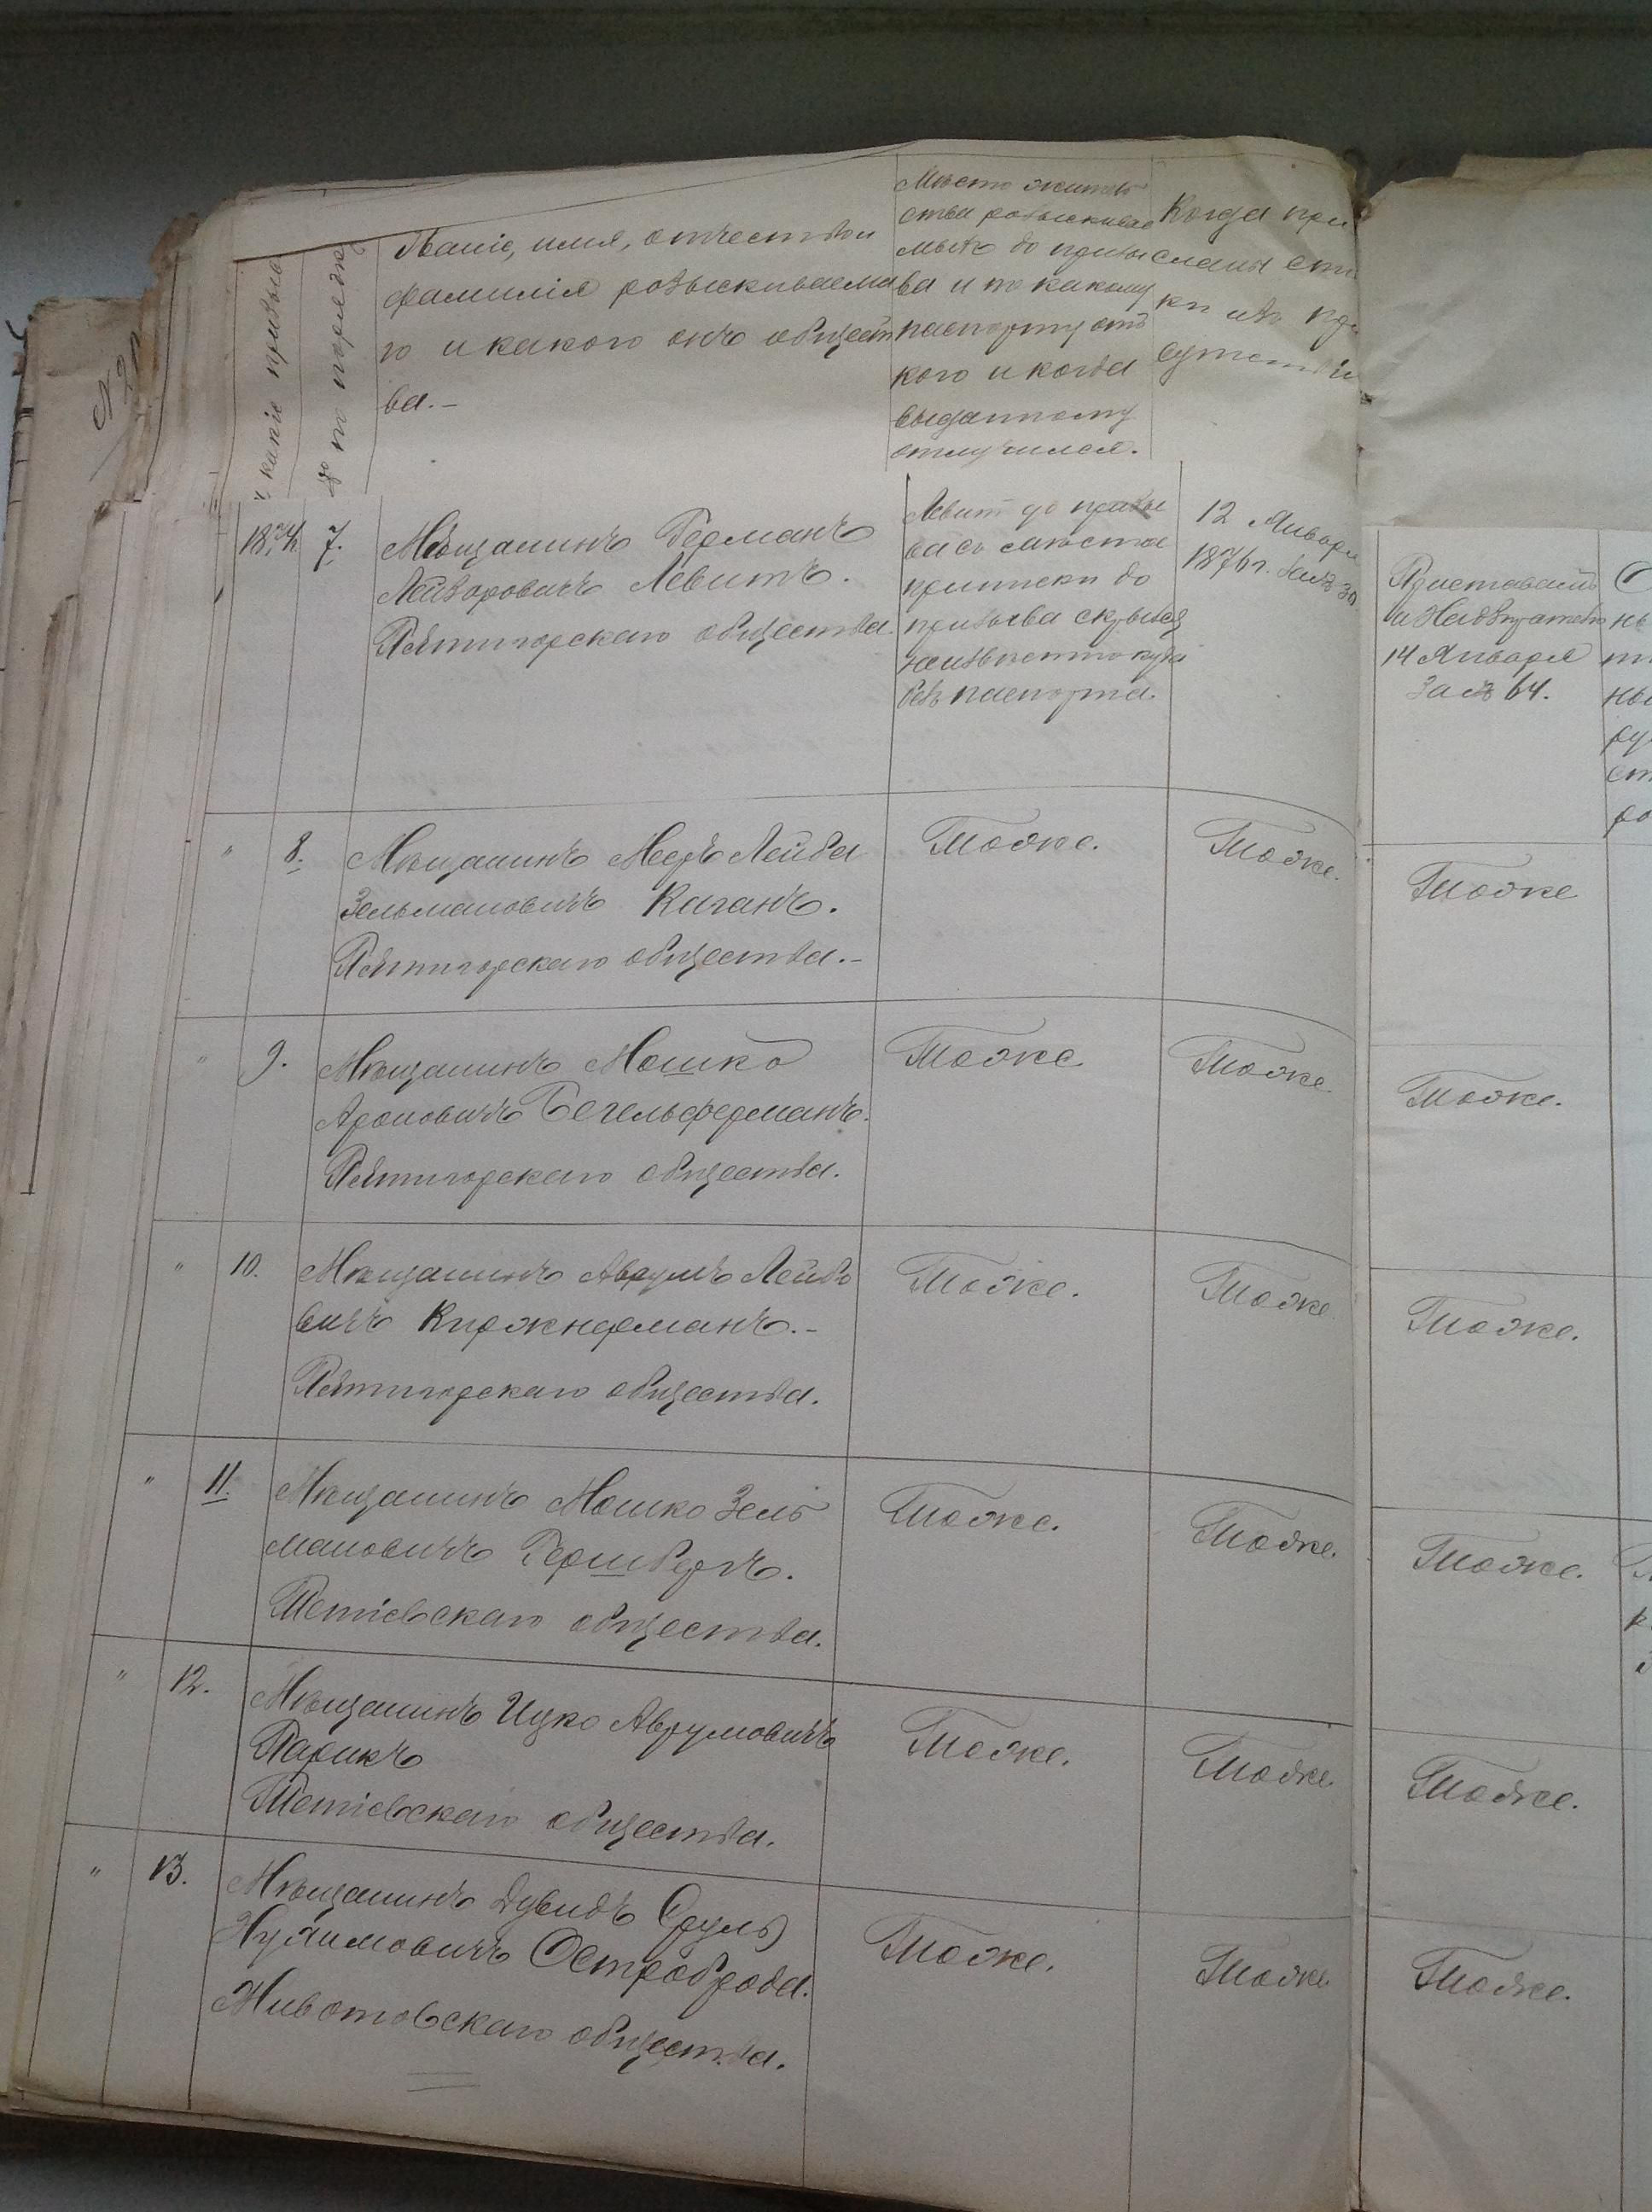 Званіе, имя, отчество и
фамилія розыскиваема
го и какого онъ общест
ва.-
Мѣсто житель
ства розыскивае
мыхъ до призы
ва и по какому
паспорту отъ
кого и когда
выданному
отлучился.
Когда при
сланы спи
ки изъ при
сутствія
какіе призыва
№ по порядку
1874. 7.
Мѣщанинъ Германъ
Лейзоровичъ Левитъ.
Пятигорскаго общества.
Левит до призы
ва съ мѣста
приписки до
призыва скрылся
неизвѣстно куда
безъ паспорта.
12 Января
1876 г. за № 30.
Приставамъ
и Надзирателю
14 Января
За № 64.
" 8. Мѣщанинъ Мееръ Лейба
Зельмановичъ Каганъ.
Пятигорскаго общества.-
Тоже. Тоже. Тоже
" 9. Мѣщанинъ Мошко
Ароновичъ Бегельферманъ.
Пятигорскаго общества.
Тоже Тоже. Тоже.
" 10. Мѣщанинъ Аврумъ Лейбо
вичъ Киржнерманъ.-
Пятигорскаго общества.
Тоже. Тоже Тоже.
" 11. Мѣщанинъ Мошко Зель
мановичъ Гершбергъ.
Тетіевскаго общества.
Тоже. Тоже. Тоже.
" 12. Мѣщанинъ Ицко Аврумовичъ
Парикъ
Тетіевскаго общества.
Тоже. Тоже. Тоже.
" 13. Мѣщанинъ Дувидъ Сруль
Нухимовичъ Остроброда.
Животовскаго общества.
Тоже. Тоже. Тоже.